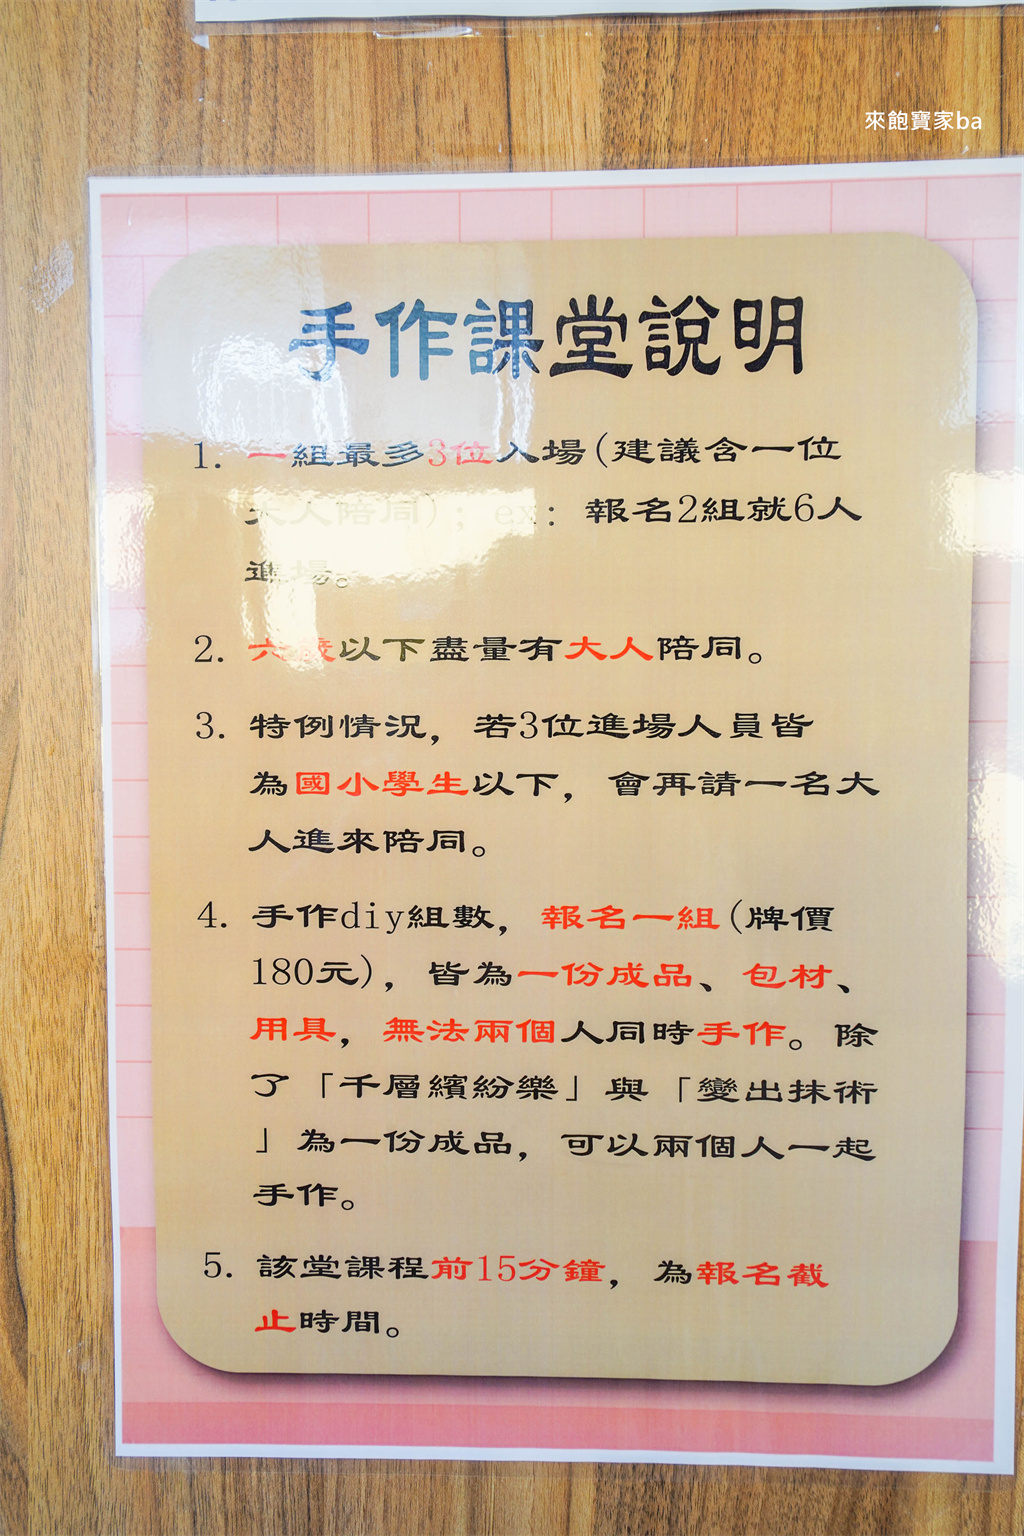 來飽寶家ba
手作課堂說明
1. 一組最多3位入場(建議含一位
大人陪同); ex: 報名2組就6人
進場。
2. 六歲以下盡量有大人陪同。
3. 特例情況，若3位進場人員皆
為國小學生以下，會再請一名大
人進來陪同。
4. 手作diy組數，報名一組(牌價
180元)，皆為一份成品、包材、
用具，無法兩個人同時手作。除
了「千層繽紛樂」與「變出抹術
」為一份成品，可以兩個人一起
手作。
5. 該堂課程前15分鐘，為報名截
止時間。